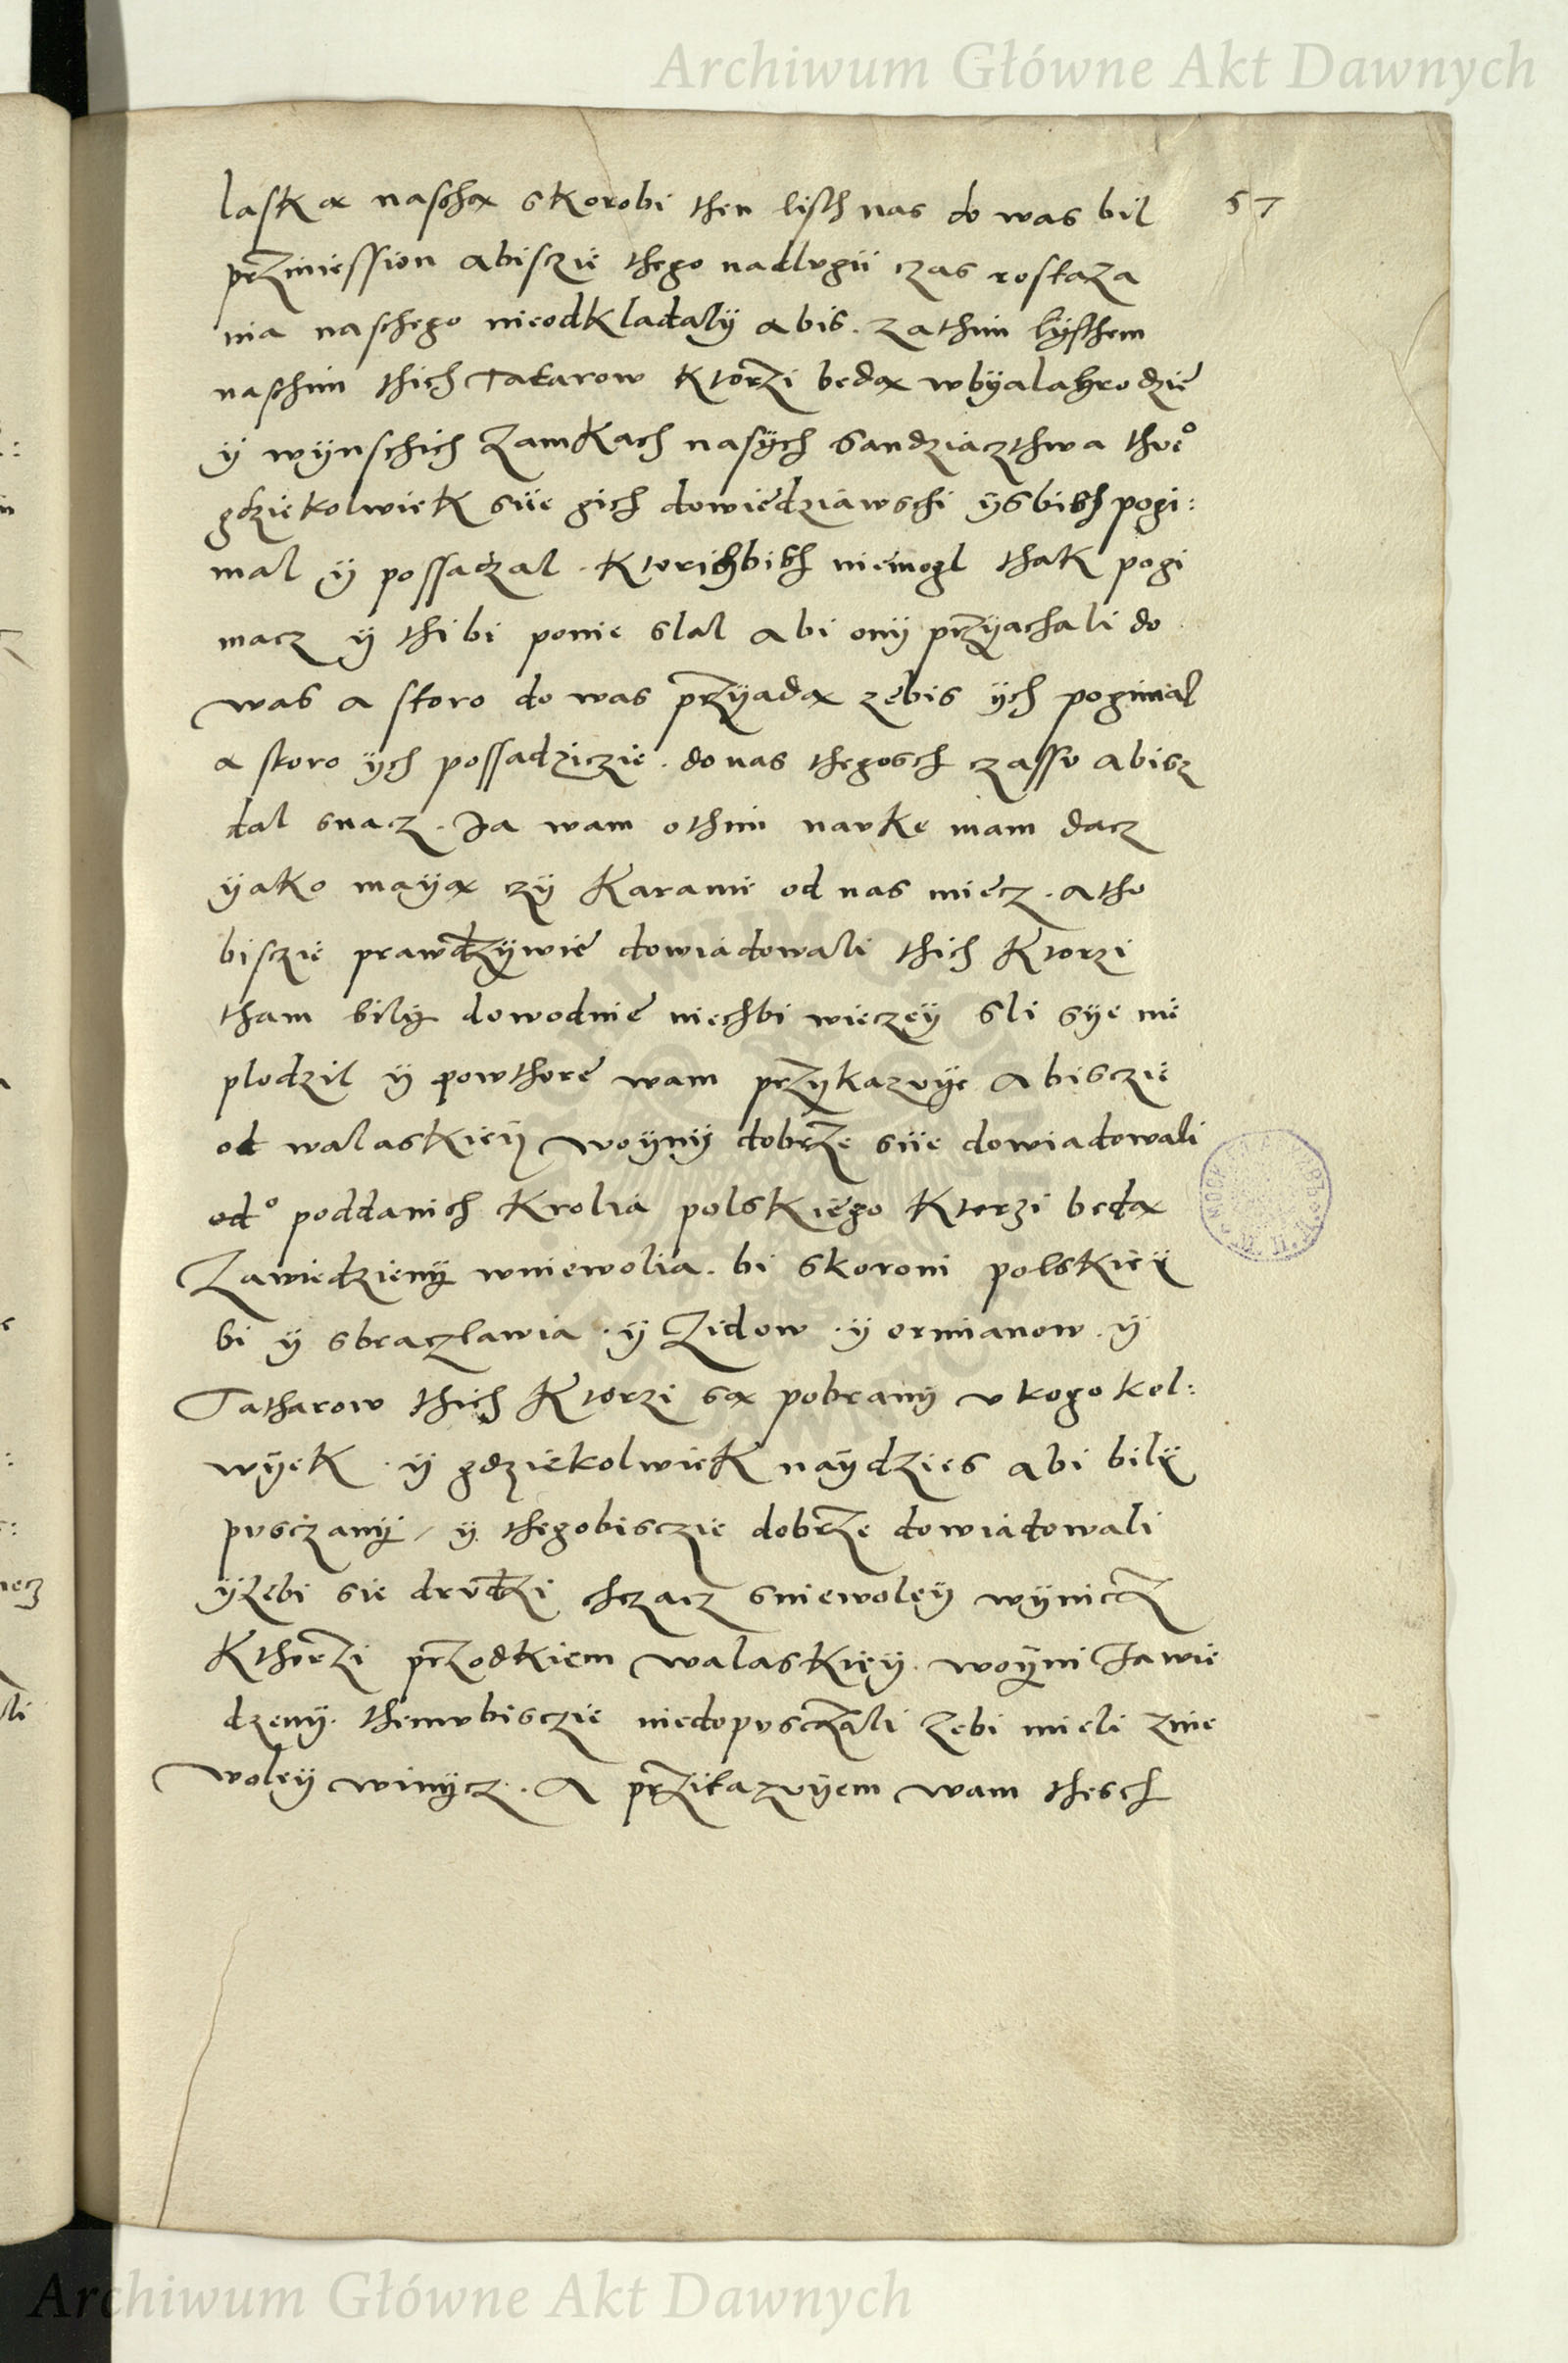 Archiwum Główne Akt Dawnych
57
laską naschą skorobi then listh nas do was bil
prziniession abisczie thego nadlugii czas roskaza
nia naschego nieodkladaly abis. zathim lysthem
naschim thich Tatarow ktorzi bedą wbyalahrodzie
y wynschich zamkach nasych sandziacztwa tweo
gdziekolwiek siie gich dowiedziawschi ysbisch pogi:
mal y possadzal. ktorichbisch niemogl thak pogi
macz y thi bi ponie slal abi ony przyachali do
was a skoro do was przyadą zebis ych pogimal
a skoro ych possadziczie. do nas thegosch czassu abisz
dal snacz. Ja wam othim nauke mam dacz
yako mayą czy karanie od nas miecz. atho
bisczie prawdzywie dowiadowali thich ktorzi
tham bily dowodnie niechbi wieczey sli sye nie
plodzil y powthore wam przykazuye abisczie
od walaskiey woyny dobrze siie dowiadowali
odo poddanich krolia polskiego ktorzi bedą
zawiedzieny wniewolia. bi skoroni polskiey
bi y sbraczlawia. y zidow. y ormianow. y
Tatharow thich ktorzi są pobrany u kogo kol:
wyek. y gdziekolwiek naydzies abi bily
pusczany / y thegobisczie dobrze dowiadowali
yzebi sie drudzi chczacz sniewoley wynicz
kthorzi przodkiem walaskiey. woyni zawie
dzeny. themubisczie niedopusczali zebi mieli znie
woley winycz. A przikazuyem wam thesch
Archiwum Główne Akt Dawnych